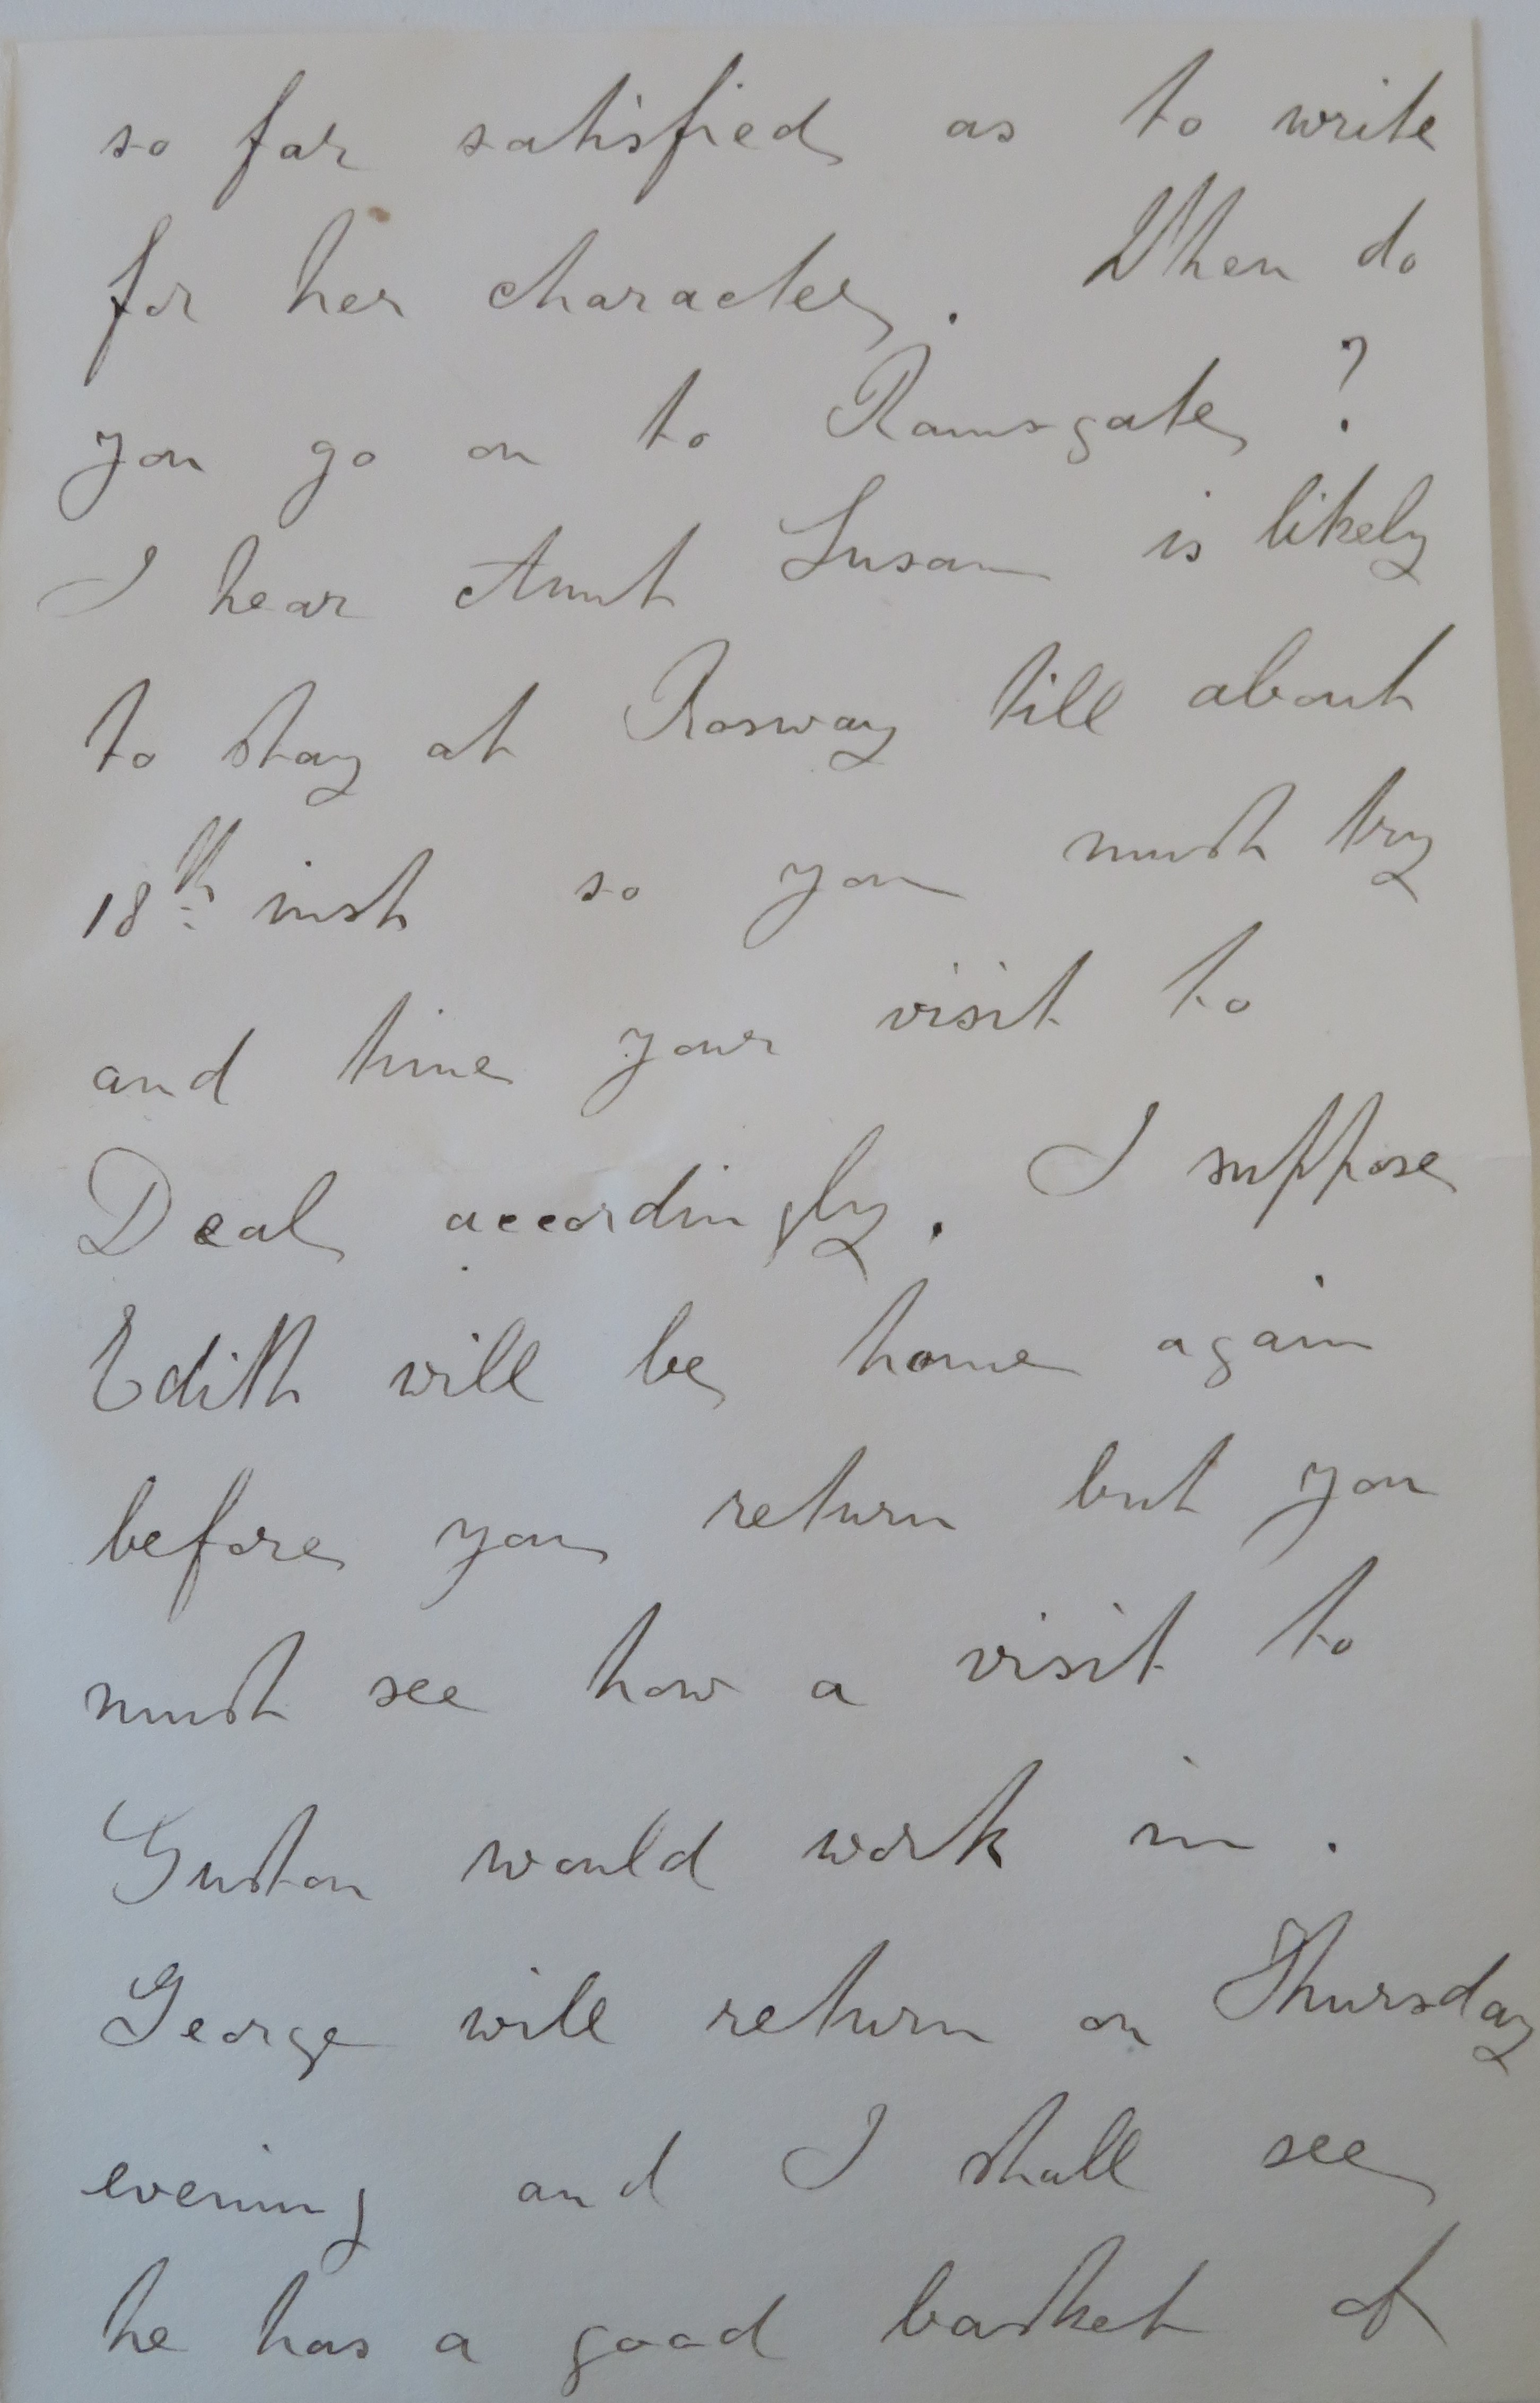 so far satisfied as to write
for her character. When do
you go on to Ramsgate?
I hear Aunt Susan is likely
to stay at Rosway till about
18th inst so you must try
and time your visit to
Deal accordingly. I suppose
Edith will be home again
before you return but you
must see how a visit to
Guston would work in.
George will return on Thursday
evening and I shall see
he has a good basket of